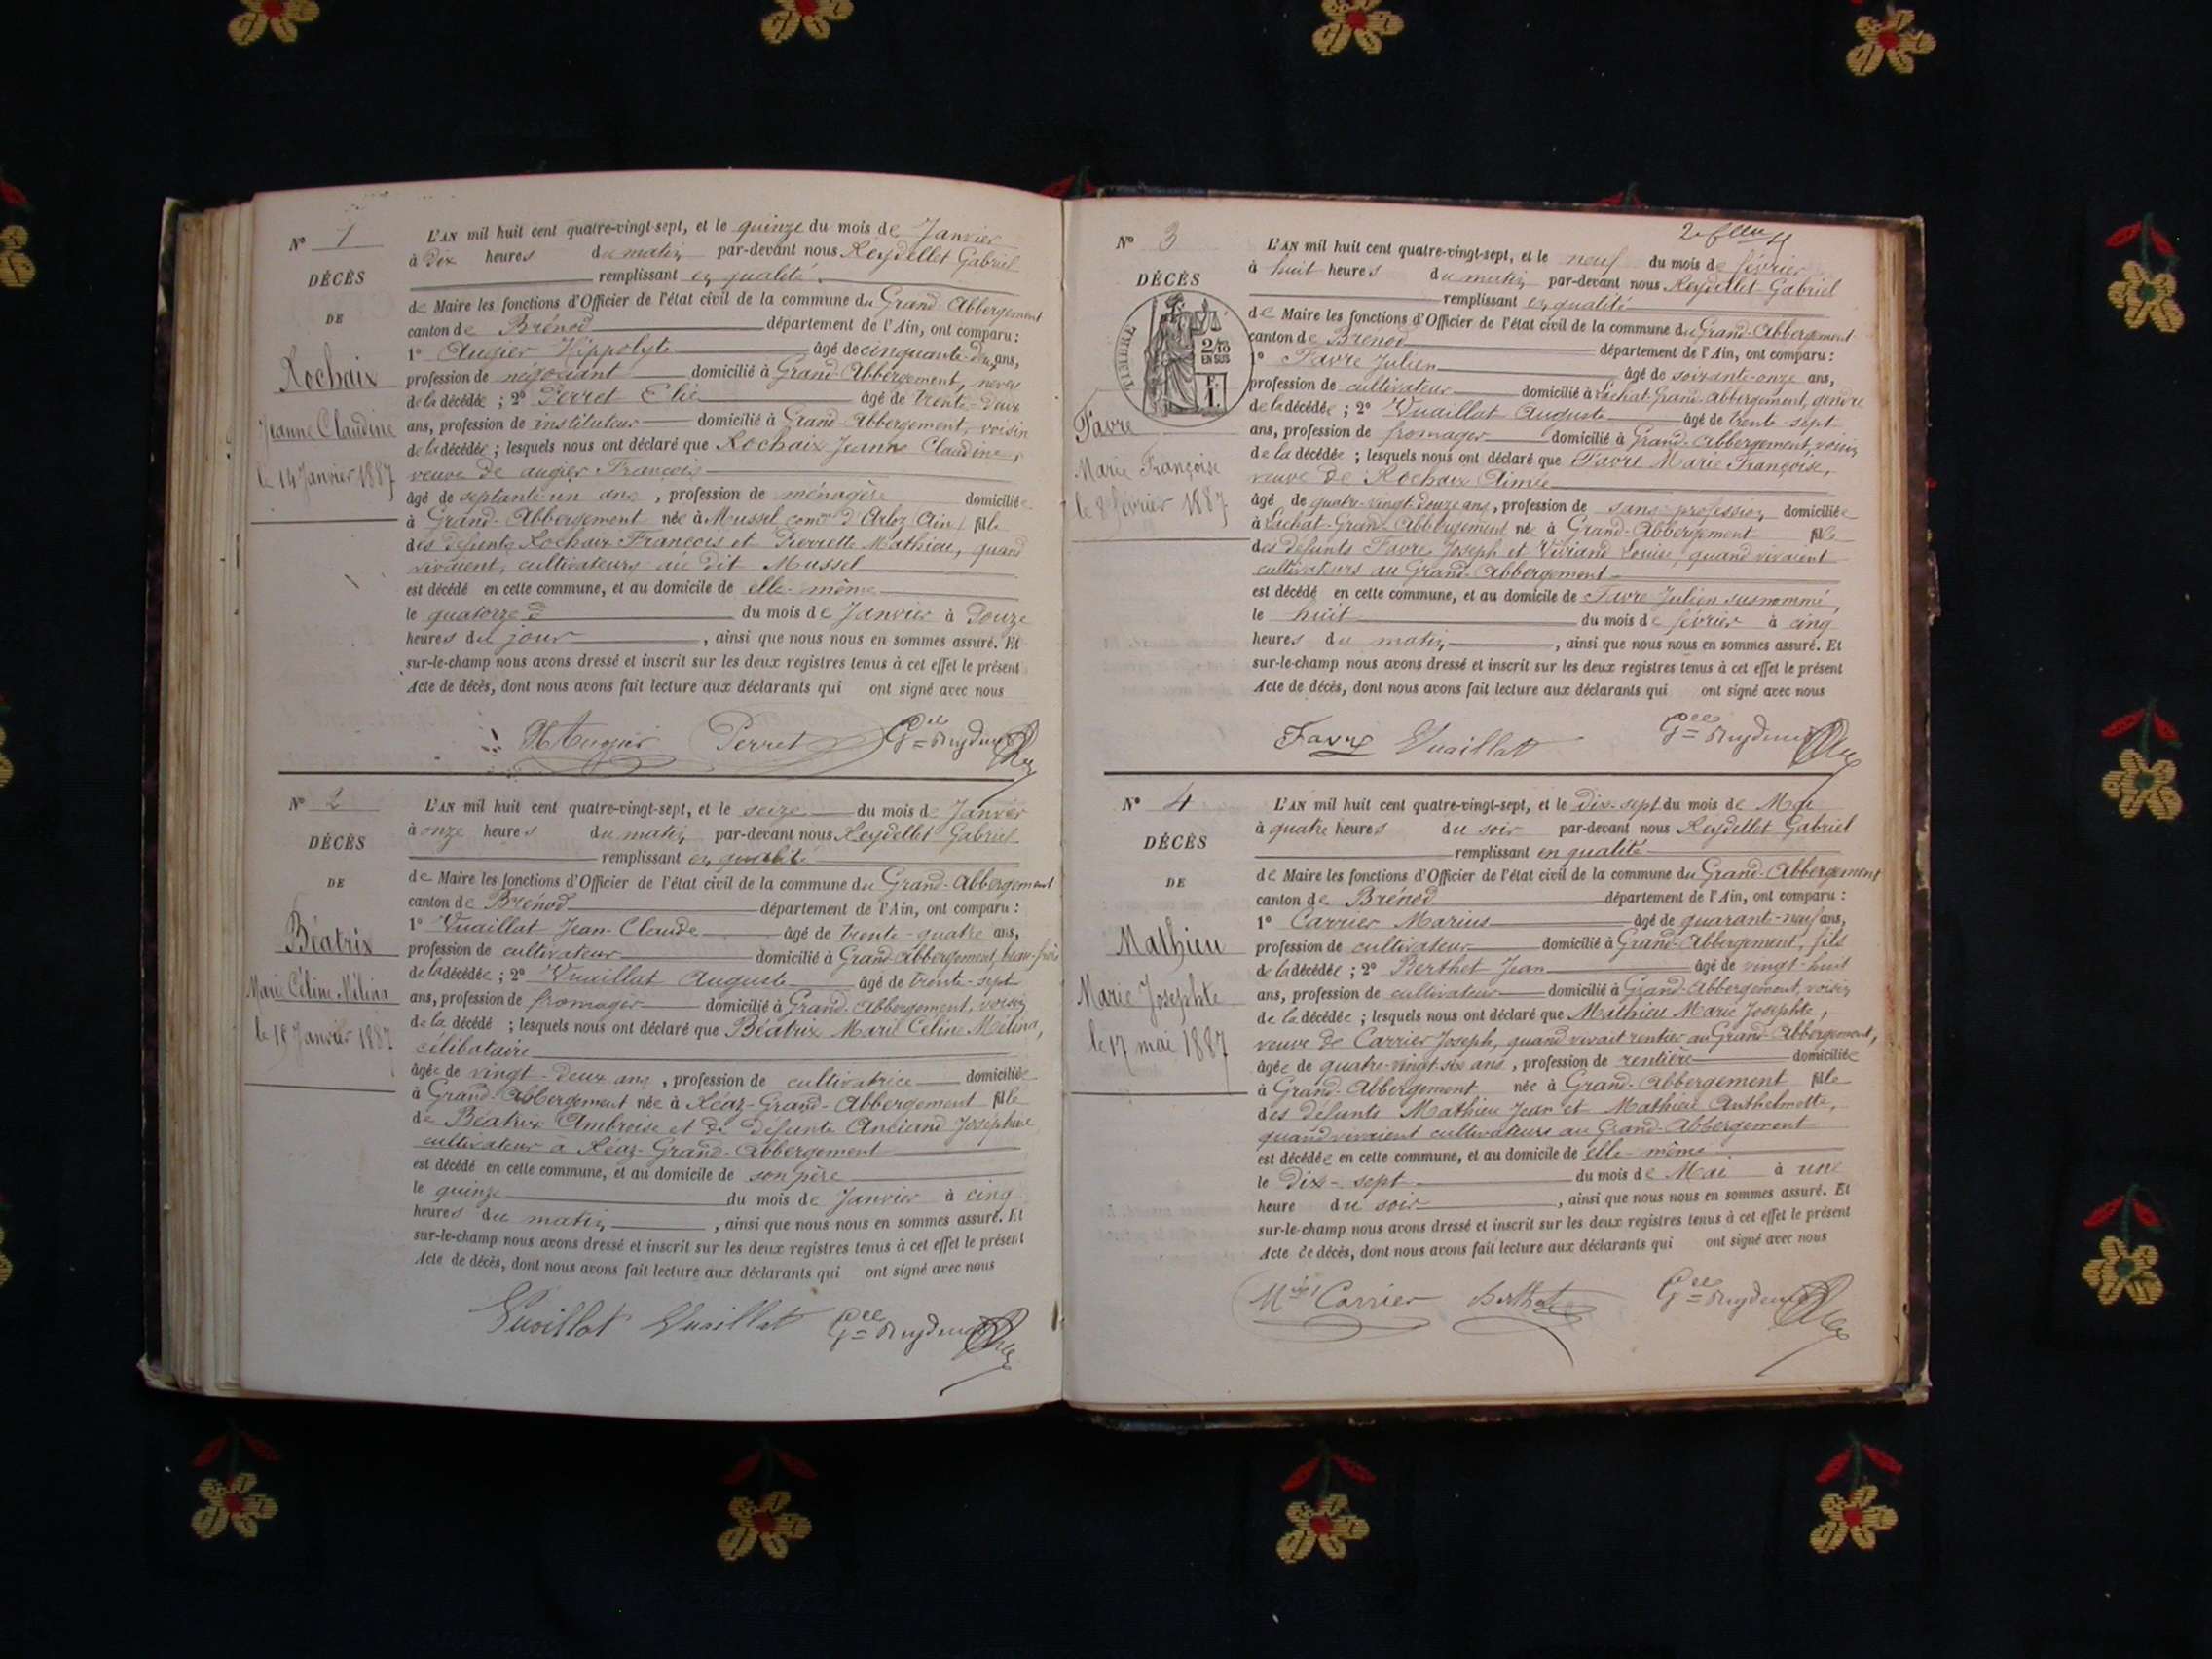 N° 1
DÉCÈS
DE
Rochaix
Jeanne Claudine
le 14 Janvier 1887
L'AN mil huit cent quatre-vingt-sept, et le quinze du mois de Janvier
à dix heures du matin par-devant nous Reydellet Gabriel
remplissant en qualité
de Maire les fonctions d'Officier de l'état civil de la commune du Grand-Abbergement
canton de Brénod département de l'Ain, ont comparu :
1° Augier Hippolyte âgé de cinquante-dix ans,
profession de négociant domicilié à Grand-Abbergement, neveu
de la décédée ; 2° Perret Elie âgé de trente-deux
ans, profession de instituteur domicilié à Grand-Abbergement, voisin
de la décédée ; lesquels nous ont déclaré que Rochaix Jeanne Claudine,
veuve de augier François
âgé de septante-un ans, profession de ménagère domiciliée
à Grand-Abbergement née à Mussel comne d'Arloz (Ain) fille
des défunts Rochaix François et Pierrette Mathieu, quand
vivaient, cultivateurs au dit Mussel
est décédé en cette commune, et au domicile de elle-même
le quatorze du mois de Janvier à douze
heures du jour, ainsi que nous nous en sommes assuré. Et
sur-le-champ nous avons dressé et inscrit sur les deux registres tenus à cet effet le présent
Acte de décès, dont nous avons fait lecture aux déclarants qui ont signé avec nous
H Augier Perret Gel Reydellet
N° 2
DÉCÈS
DE
Béatrix
Marie Céline Mélina
le 15 Janvier 1887
L'AN mil huit cent quatre-vingt-sept, et le seize du mois de Janvier
à onze heures du matin par-devant nous Reydellet Gabriel
remplissant en qualité
de Maire les fonctions d'Officier de l'état civil de la commune du Grand-Abbergement
canton de Brénod département de l'Ain, ont comparu :
1° Vuaillat Jean-Claude âgé de trente-quatre ans,
profession de cultivateur domicilié à Grand-Abbergement, beau-frère
de la décédée ; 2° Vuaillat Auguste âgé de trente-sept
ans, profession de fromager domicilié à Grand-Abbergement, voisin
de la décédé ; lesquels nous ont déclaré que Béatrix Marie Céline Mélina,
célibataire
âgée de vingt-deux ans, profession de cultivatrice domiciliée
à Grand-Abbergement née à Réaz-Grand-Abbergement fille
de Béatrix Ambroise et de défunte Anciand Joséphine
cultivateur à Réaz-Grand-Abbergement
est décédé en cette commune, et au domicile de son père
le quinze du mois de Janvier à cinq
heures du matin, ainsi que nous nous en sommes assuré. Et
sur-le-champ nous avons dressé et inscrit sur les deux registres tenus à cet effet le présent
Acte de décès, dont nous avons fait lecture aux déclarants qui ont signé avec nous
Vuaillat Vuaillat Gel Reydellet
N° 3
DÉCÈS
TIMBRE
2/10
EN SUS
F.
1.
Favre
Marie Françoise
le 8 février 1887
L'AN mil huit cent quatre-vingt-sept, et le neuf du mois de février
à huit heures du matin par-devant nous Reydellet Gabriel
remplissant en qualité
de Maire les fonctions d'Officier de l'état civil de la commune du Grand-Abbergement
canton de Brénod département de l'Ain, ont comparu :
1° Favre Julien âgé de soixante-onze ans,
profession de cultivateur domicilié à Lachat-Grand-Abbergement, gendre
de la décédée ; 2° Vuaillat Auguste âgé de trente-sept
ans, profession de fromager domicilié à Grand-Abbergement, voisin
de la décédée ; lesquels nous ont déclaré que Favre Marie Françoise,
veuve de Rochaix Aimée
âgé de quatre-vingt-douze ans, profession de sans profession domiciliée
à Lachat-Grand-Abbergement née à Grand-Abbergement fille
des défunts Favre Joseph et Viviand Louise, quand vivaient
cultivateurs au Grand-Abbergement
est décédé en cette commune, et au domicile de Favre Julien susnommé,
le huit du mois de février à cinq
heures du matin, ainsi que nous nous en sommes assuré. Et
sur-le-champ nous avons dressé et inscrit sur les deux registres tenus à cet effet le présent
Acte de décès, dont nous avons fait lecture aux déclarants qui ont signé avec nous
Favre Vuaillat Gel Reydellet
N° 4
DÉCÈS
DE
Mathieu
Marie Josephte
le 17 mai 1887
L'AN mil huit cent quatre-vingt-sept, et le dix-sept du mois de Mai
à quatre heures du soir par-devant nous Reydellet Gabriel
remplissant en qualité
de Maire les fonctions d'Officier de l'état civil de la commune du Grand-Abbergement
canton de Brénod département de l'Ain, ont comparu :
1° Carrier Marius âgé de quarante-neuf ans,
profession de cultivateur domicilié à Grand-Abbergement, fils
de la décédée ; 2° Berthet Jean âgé de vingt-huit
ans, profession de cultivateur domicilié à Grand-Abbergement, voisin
de la décédée ; lesquels nous ont déclaré que Mathieu Marie Josephte,
veuve de Carrier Joseph, quand vivait rentier au Grand-Abbergement,
âgée de quatre-vingt-six ans, profession de rentière domiciliée
à Grand-Abbergement née à Grand-Abbergement fille
des défunts Mathieu Jean et Mathieu Anthelmette,
quand vivaient cultivateurs au Grand-Abbergement
est décédée en cette commune, et au domicile de elle-même
le dix-sept du mois de Mai à une
heure du soir, ainsi que nous nous en sommes assuré. Et
sur-le-champ nous avons dressé et inscrit sur les deux registres tenus à cet effet le présent
Acte de décès, dont nous avons fait lecture aux déclarants qui ont signé avec nous
Mius Carrier Berthet Gel Reydellet